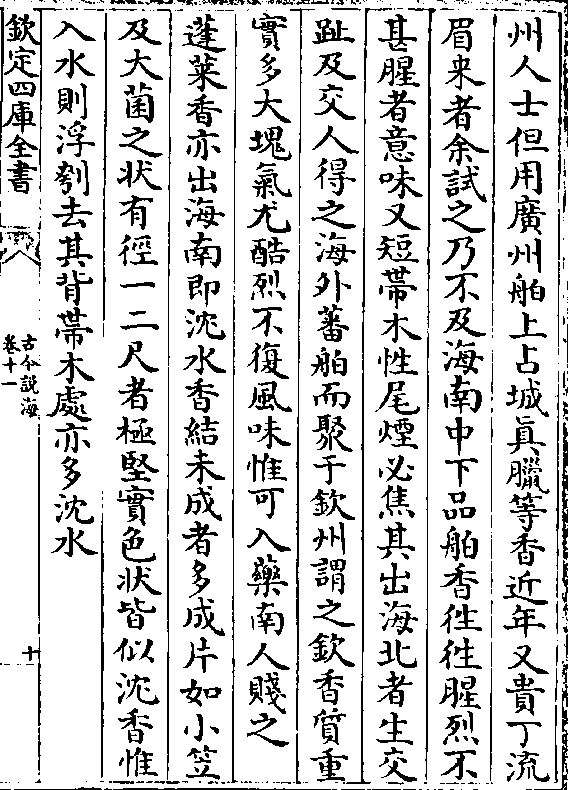 州人士但用廣州舶上占城真臘等香近年又貴丁流
眉来者余試之乃不及海南中下品舶香徃徃腥烈不
甚腥者意味又短帶木性尾煙必焦其出海北者生交
趾及交人得之海外蕃舶而聚于欽州謂之欽香質重
實多大塊氣尤酷烈不復風味惟可入藥南人賤之
蓬莱香亦出海南即沈水香結未成者多成片如小笠
及大菌之状有徑一二尺者極堅實色状皆似沈香惟
入水則浮刳去其背帶木處亦多沈水
欽定四庫全書
古今説海
卷十一
十